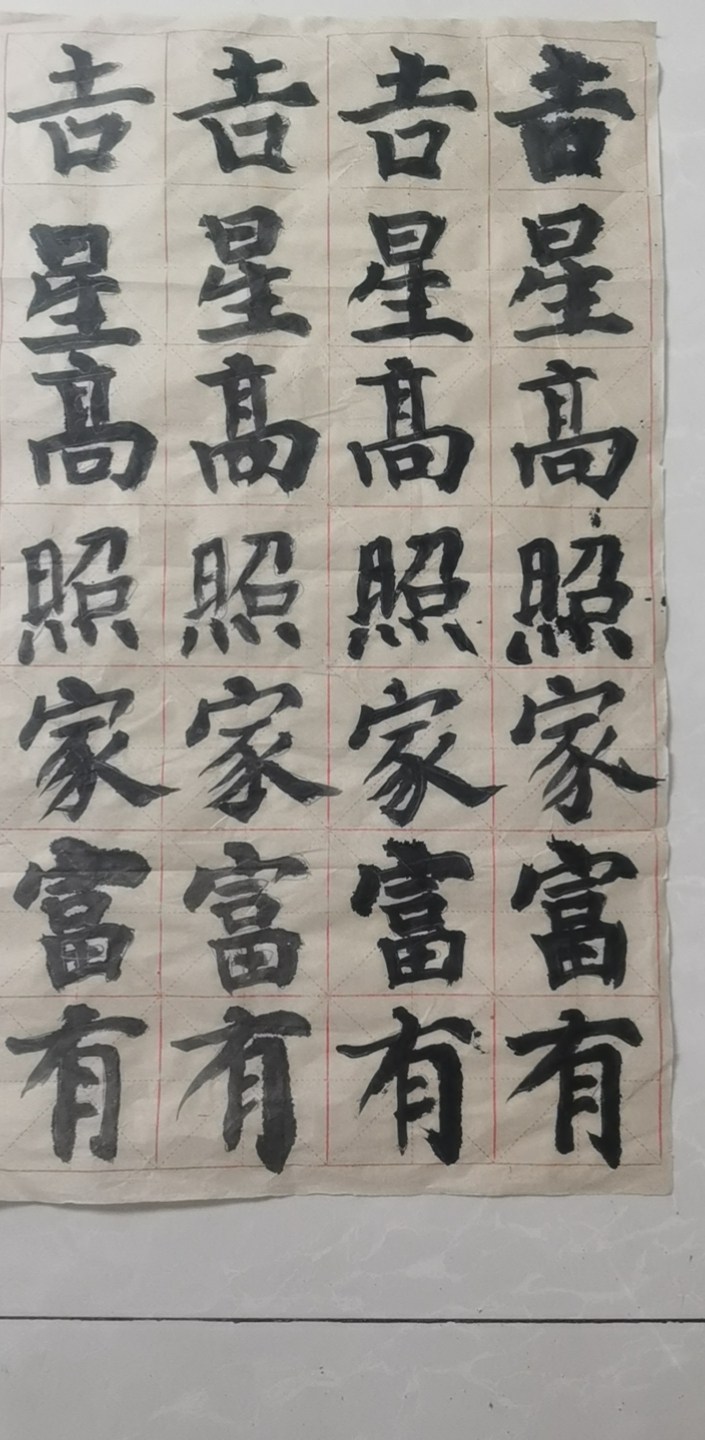 吉星高照家富有
吉星高照家富有
吉星高照家富有
吉星高照家富有